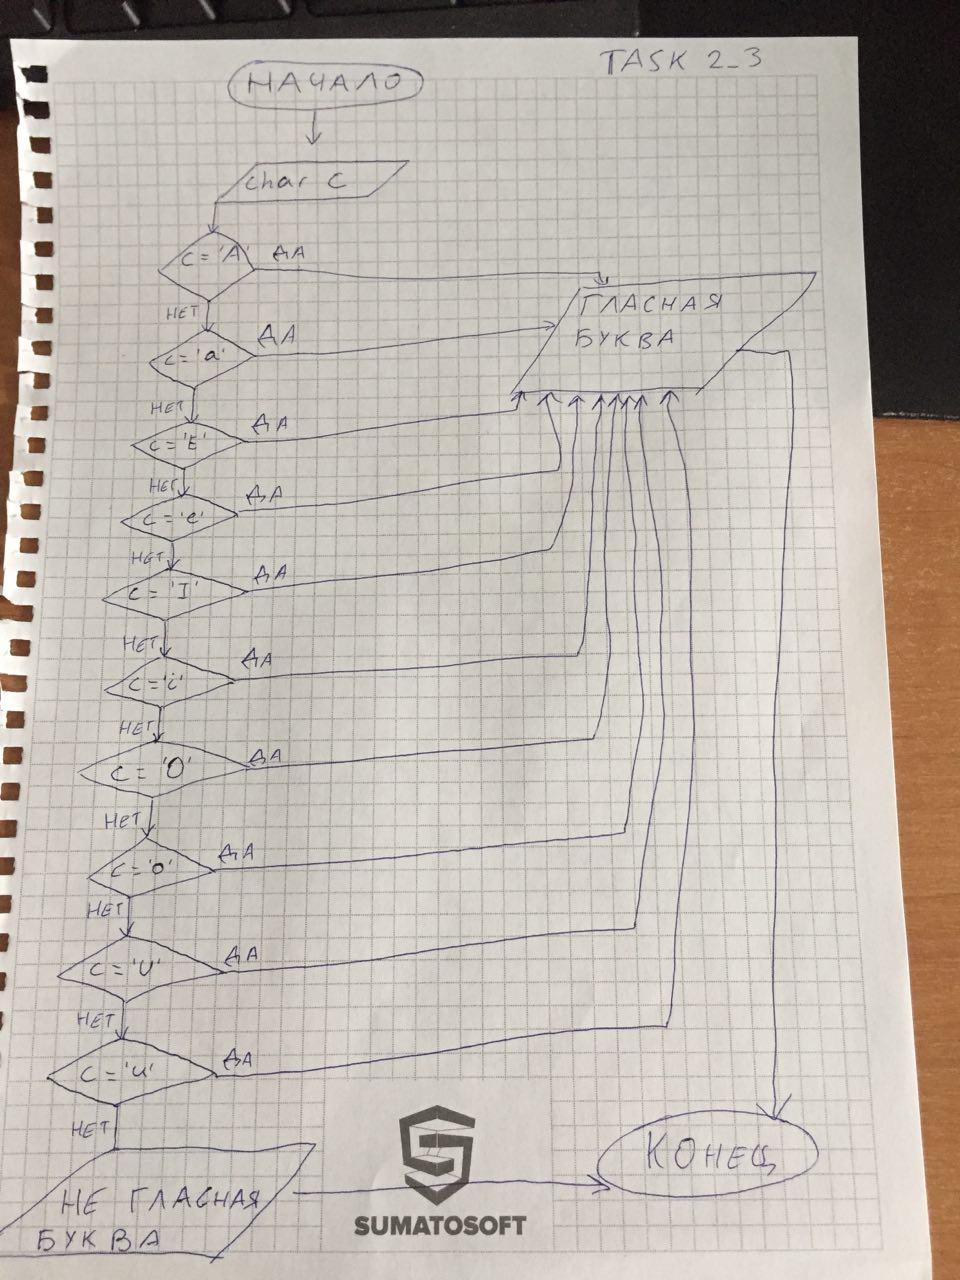 TASK 2_3
НАЧАЛО
char c
c = 'A'
ДА
ГЛАСНАЯ
БУКВА
НЕТ
c = 'a'
ДА
НЕТ
c = 'E'
ДА
НЕТ
c = 'e'
ДА
НЕТ
c = 'I'
ДА
НЕТ
c = 'i'
ДА
НЕТ
c = 'O'
ДА
НЕТ
c = 'o'
ДА
НЕТ
c = 'U'
ДА
НЕТ
c = 'u'
ДА
НЕТ
НЕ ГЛАСНАЯ
БУКВА
КОНЕЦ
SUMATOSOFT